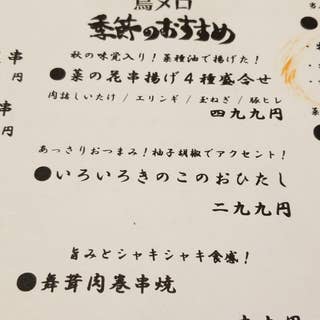 鳥メロ
季節のおすすめ
秋の味覚入り！菜種油で揚げた！
●菜の花串揚げ４種盛合せ
肉詰しいたけ / エリンギ / 玉ねぎ / 豚ヒレ
四九九円
あっさりおつまみ！柚子胡椒でアクセント！
●いろいろきのこのおひたし
二九九円
旨みとシャキシャキ食感！
●舞茸肉巻串焼
串
円
串
円